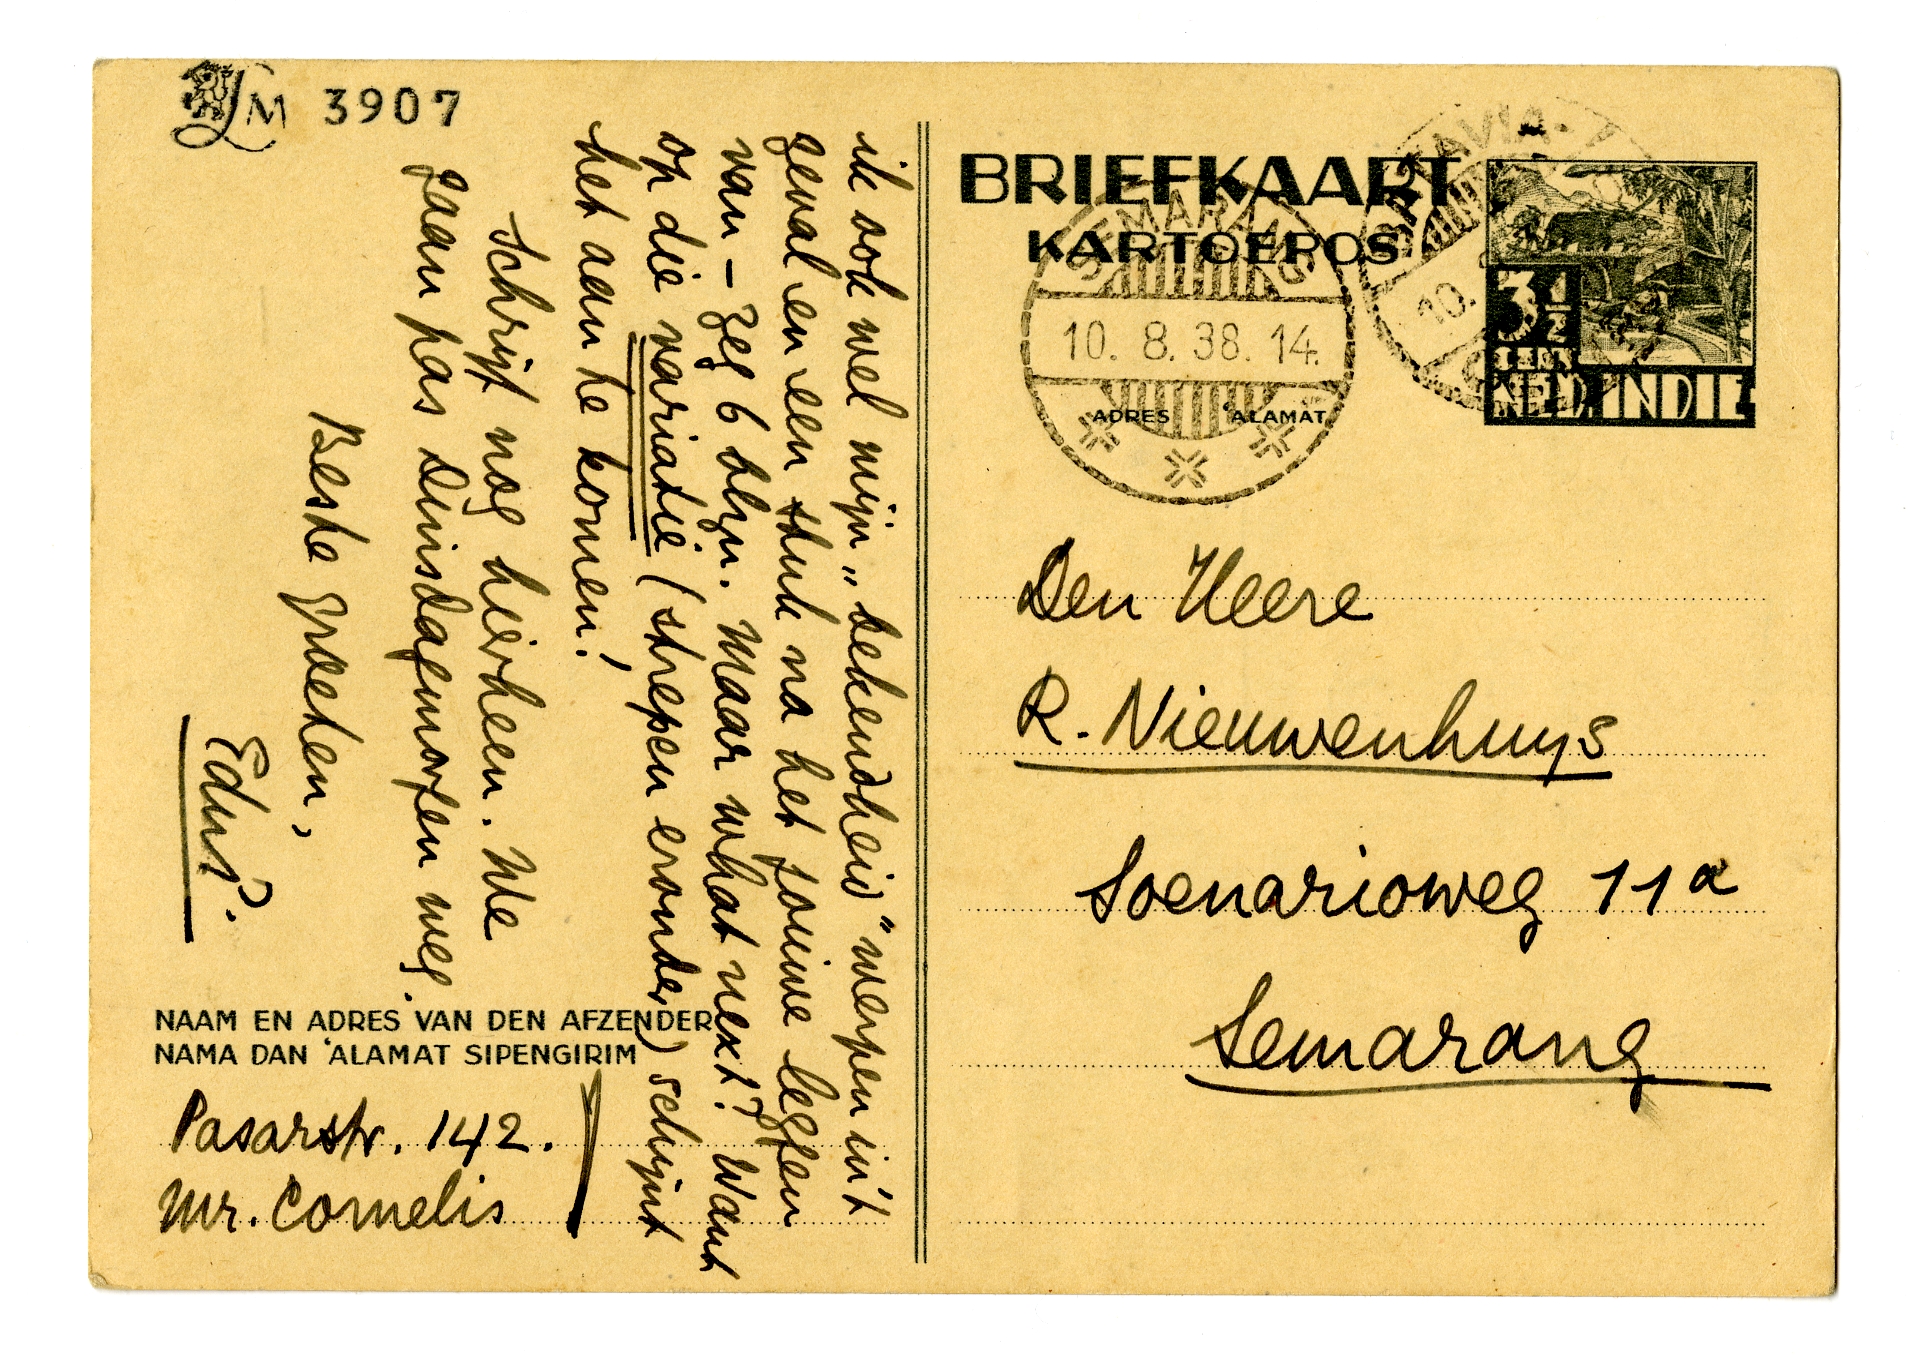 LM 3907
ik ook wel mijn „bekendheid" werpen in 't
geval en een stuk na het jouwe leggen
van – zeg 6 blzn. Maar what next? Want
op die variatie (strepen eronder) schijnt
het aan te komen!
Schrijf nog hierheen. We
gaan pas Dinsdagmorgen weg.
Beste groeten,
EduP.
NAAM EN ADRES VAN DEN AFZENDER
NAMA DAN 'ALAMAT SIPENGIRIM
Pasarstr. 142.
Mr. Cornelis
BRIEFKAART
KARTOEPOS
BATAVIA
10.
SEMARANG
10. 8. 38. 14.
ADRES 'ALAMAT
3½
CENT
NED. INDIE
Den Heere
R. Nieuwenhuys
Soenarioweg 11a
Semarang